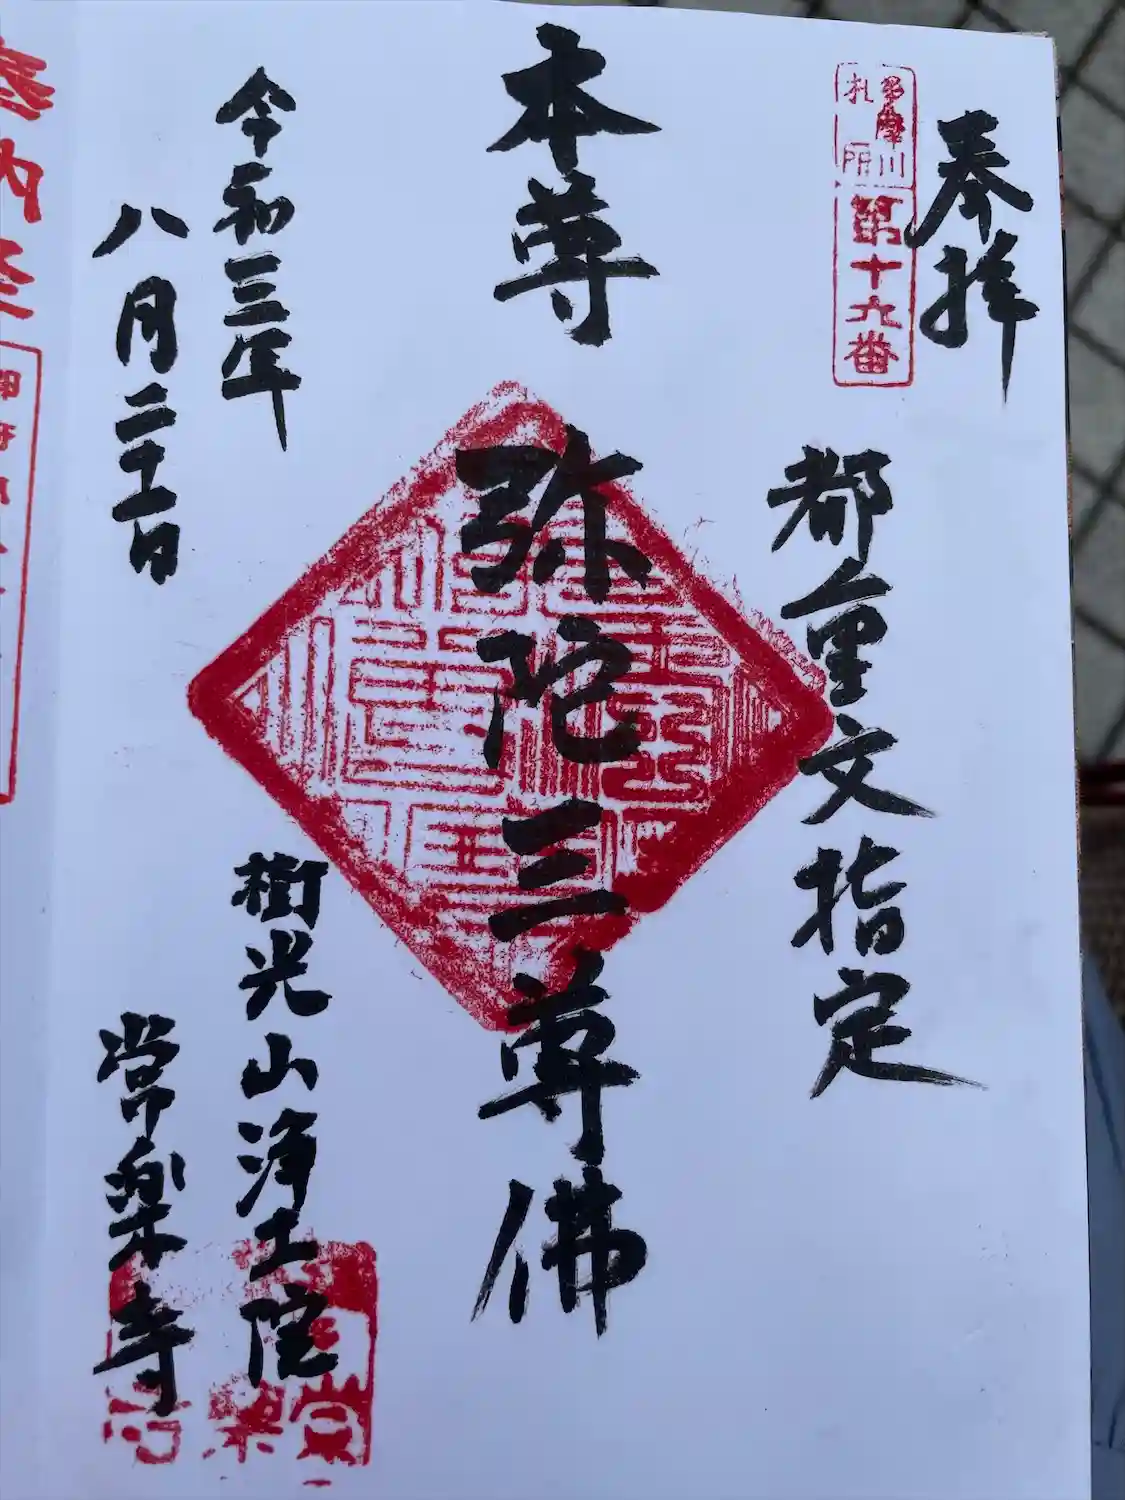 奉拝
多摩川
札所
第十九番
都重文指定
本尊
弥陀三尊佛
令和三年
八月二十一日
樹光山浄土院
常楽寺
奉納経